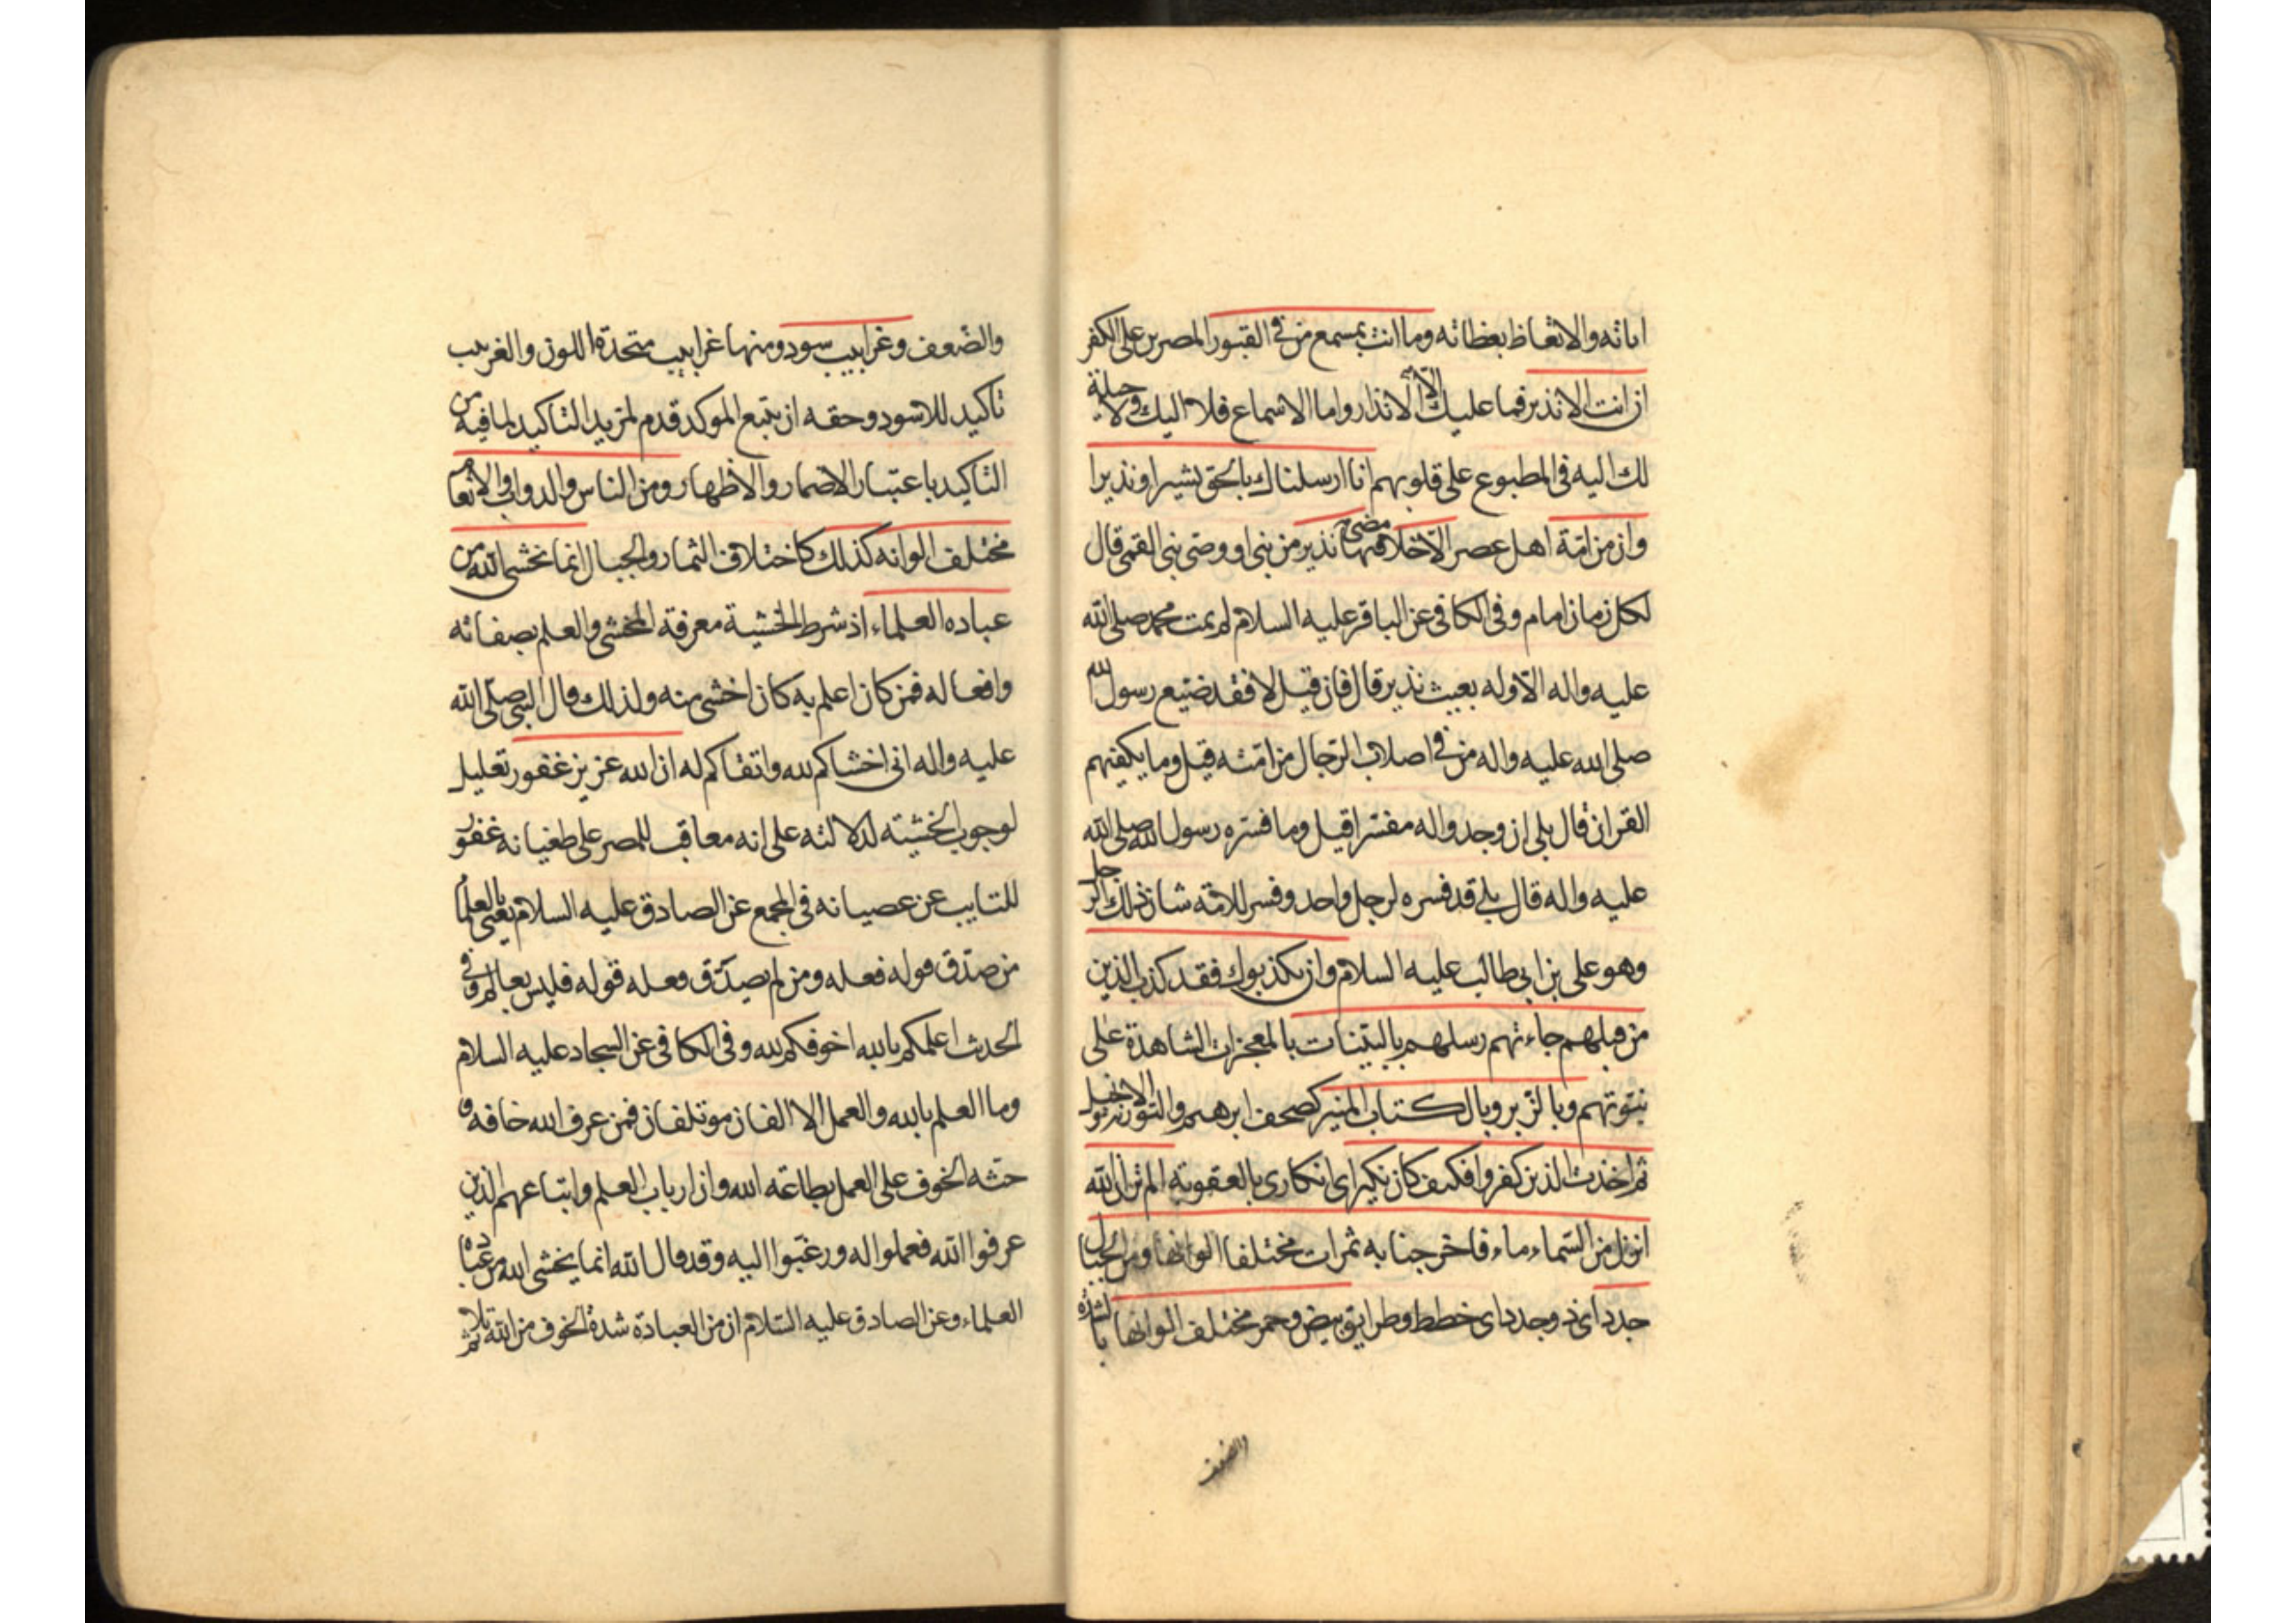 اياته والاتعاظ بعظاته وما انت بمسمع من في القبور المصرين على الكفر
ان انت الا نذير فما عليك الا الانذار واما الاسماع فلا اليك ولا حيلة
لك اليه في المطبوع على قلوبهم انا ارسلناك بالحق بشيرا ونذيرا
وان من امة اهل عصر الا خلا مضى فيها نذير من نبي او وصي نبي القمي قال
لكل زمان امام وفي الكافي عن الباقر عليه السلام لم يمت محمد صلى الله
عليه واله الا وله بعيث نذير قال فان قيل لا فقد ضيع رسول الله
صلى الله عليه واله من في اصلاب الرجال من امته قيل وما يكفيهم
القران قال بلى ان وجدوا له مفسرا قيل وما فسره رسول الله صلى الله
عليه واله قال بلى قد فسره لرجل واحد وفسر للامة شان ذلك الرجل
وهو علي بن ابي طالب عليه السلام وان يكذبوك فقد كذب الذين
من قبلهم جاءتهم رسلهم بالبينات بالمعجزات الشاهدة على
نبوتهم وبالزبر وبالكتاب المنير كصحف ابرهيم والتورية والانجيل
ثم اخذت الذين كفروا فكيف كان نكير اى انكارى بالعقوبة الم تر ان الله
انزل من السماء ماء فاخرجنا به ثمرات مختلفا الوانها ومن الجبال
جدد اى ذو جدد اى خطط وطرايق بيض وحمر مختلف الوانها بالشدة
والضعف
والضعف وغرابيب سود ومنها غرابيب متحدة اللون والغربيب
تاكيد للاسود وحقه ان يتبع الموكد قدم لمزيد التاكيد لما فيه من
التاكيد باعتبار الاضمار والاظهار ومن الناس والدواب والانعام
مختلف الوانه كذلك كاختلاف الثمار والجبال انما يخشى الله من
عباده العلماء اذ شرط الخشية معرفة المخشى والعلم بصفاته
وافعاله فمن كان اعلم به كان اخشى منه ولذلك قال النبي صلى الله
عليه واله انى اخشاكم لله واتقاكم له ان الله عزيز غفور تعليل
لوجوب الخشيته لدلالته على انه معاقب للمصر على طغيانه غفور
للتايب عن عصيانه في المجمع عن الصادق عليه السلام يعنى بالعلماء
من صدق قوله فعله ومن لم يصدق فعله قوله فليس بعالم وفي
الحديث اعلمكم بالله اخوفكم لله وفي الكافي عن السجاد عليه السلام
وما العلم بالله والعمل الا الفان موتلفان فمن عرف الله خافه و
حثه الخوف على العمل بطاعة الله وان ارباب العلم واتباعهم الذين
عرفوا الله فعملوا له ورغبوا اليه وقد قال الله انما يخشى الله من عباده
العلماء وعن الصادق عليه السلام ان من العبادة شدة الخوف من الله ثم تلا